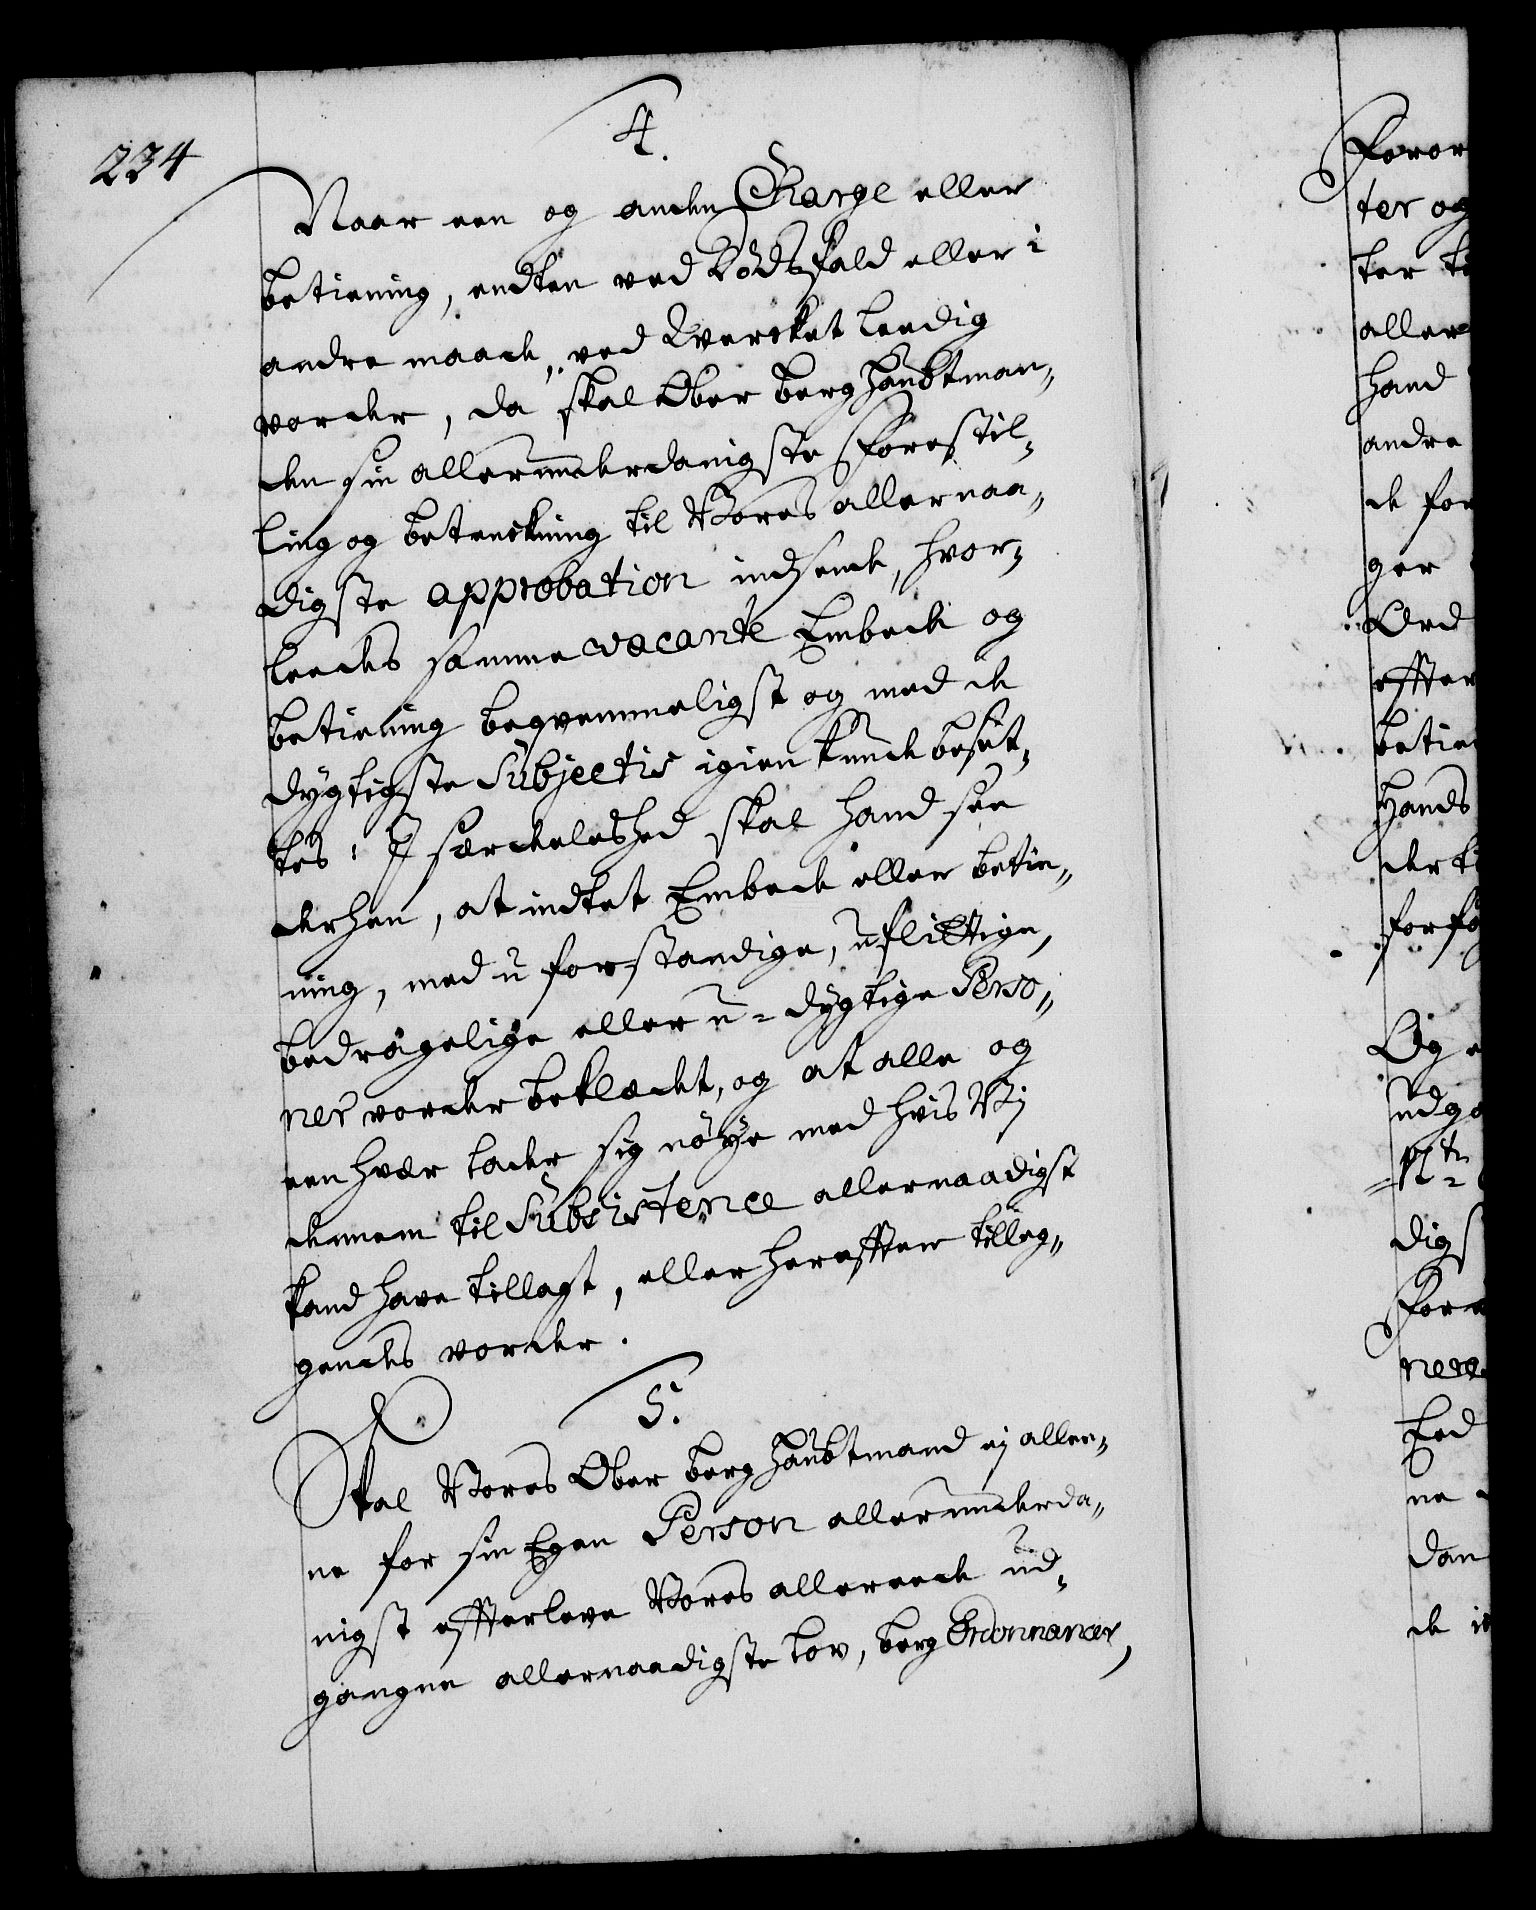 234
4.
Naar een og anden Charge eller
betiening, endten ved Dödsfald eller i
andre maade, ved Vercket leedig
vorder, da skal Ober berghaubtman-
den sin allerunderdanigste Forestil-
ling og betenckning til Vores allernaa-
digste approbation indsende, hvor-
leedes samme vacante Embede og
betiening beqvemmeligst og med de
dygtigste Subjectis igien kunde besæt-
tes: I særdeleshed skal hand see
derhen, at indtet Embede eller betie-
ning, med uforstandige, uflittige,
bedrögelige eller u-dygtige Perso-
ner vorder beklædet, og at alle og
een hver lader sig nöye med hvis Vi
dennem til Subsistence allernaadigst
kand have tillagt, eller herefter tilleg-
gendes vorder.
5.
Skal Vores Ober berghaubtmand ej allee-
ne for sin Egen Person allerunderda-
nigst efterleve Vores allereede ud-
gangne allernaadigste Lov, berg Ordonnancer,
Foror
ter og
ter ti
aller
hand
andre
de for
ger
Ord
effter
betie
Hands
der ti
forfö
Og e
udga
digs
For
nere
Eed
ne
dan
de i